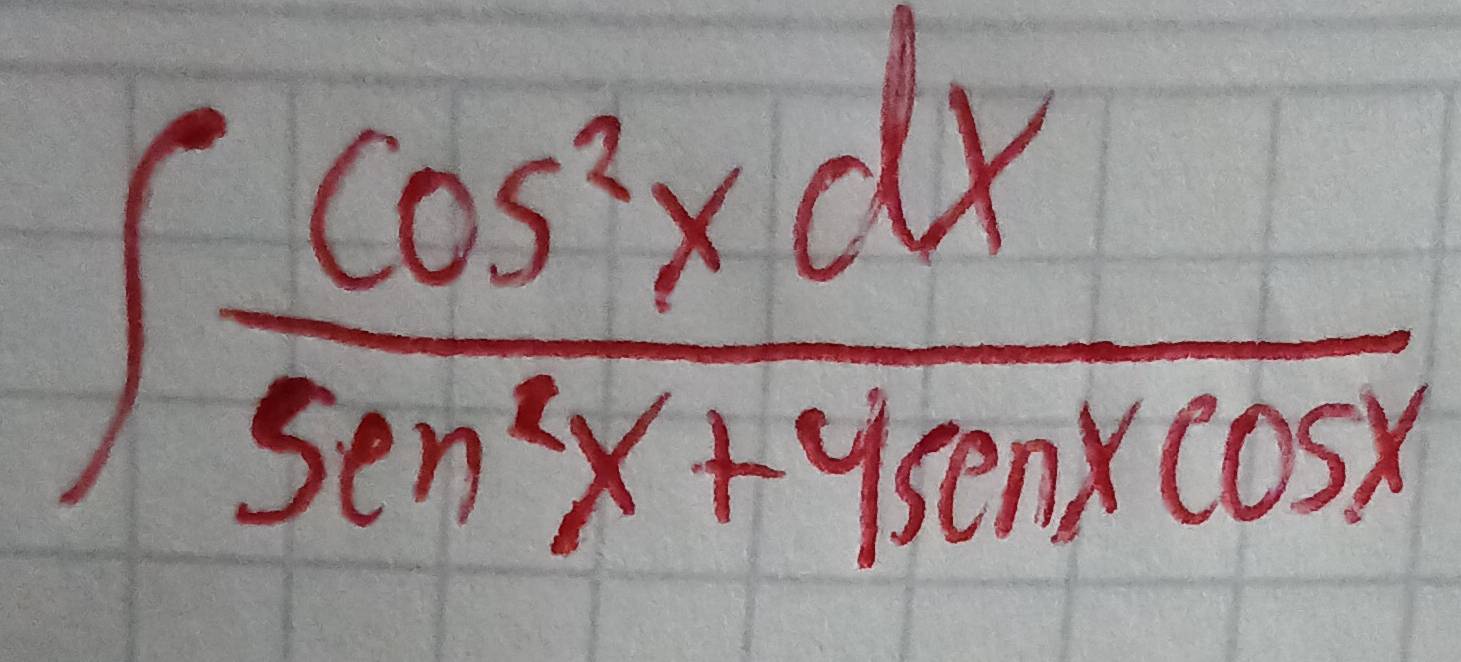 ∫ cos²x dx
sen²x + 4senx cosx